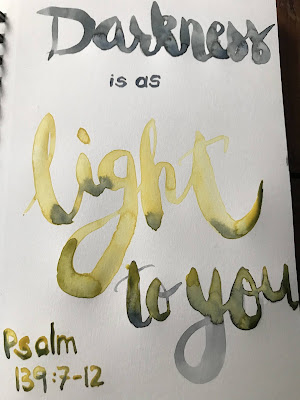 Darkness
is as
light
to you
Psalm
139:7-12